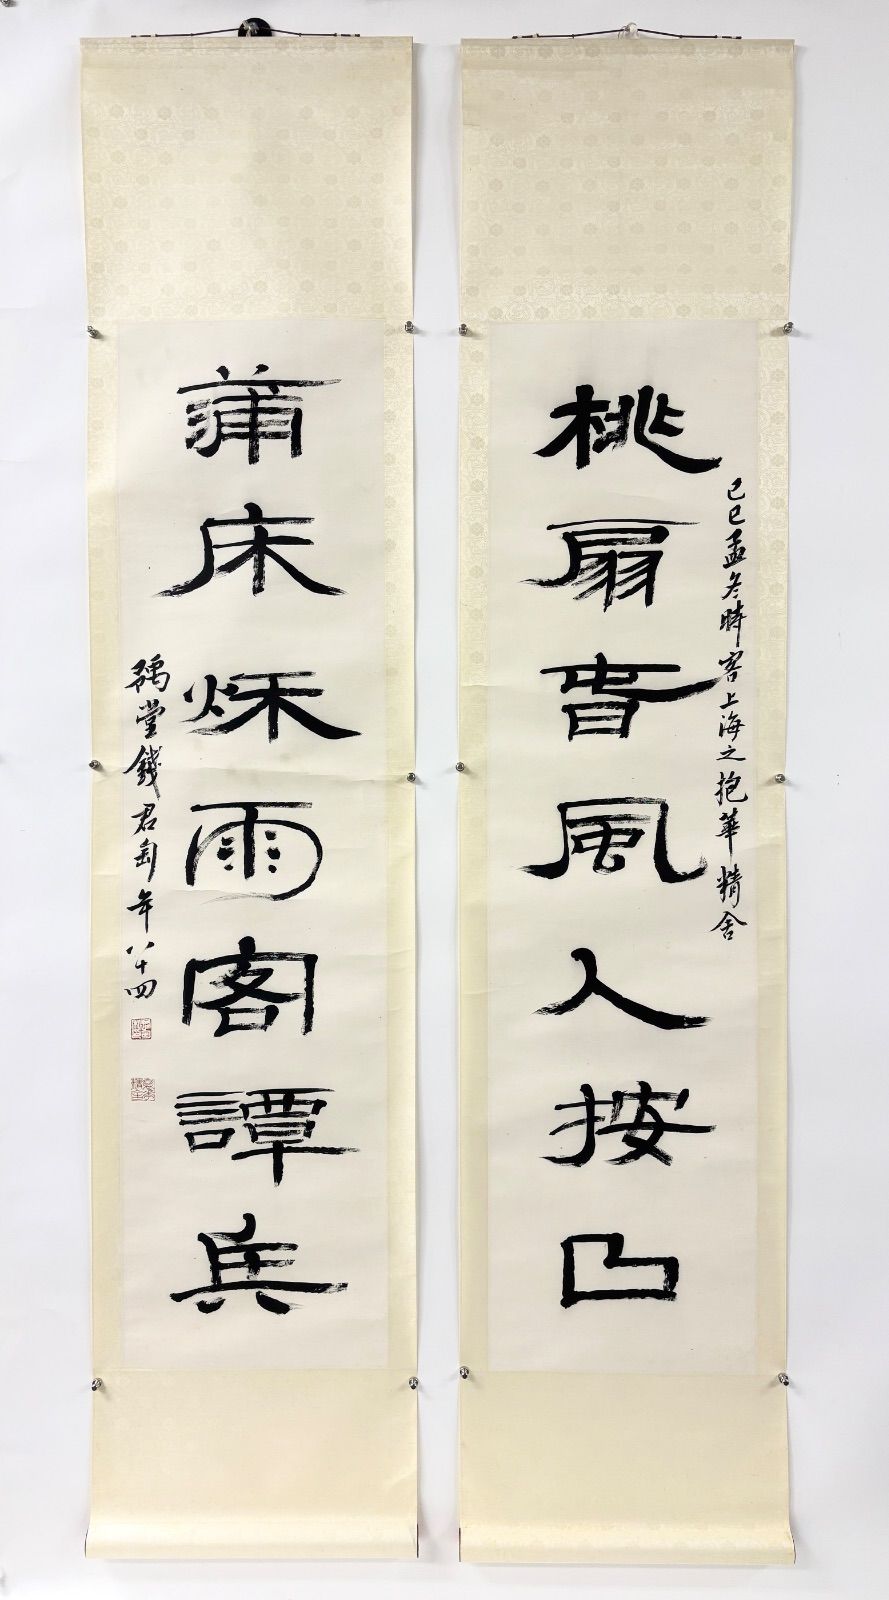 桃扇旾風人按曲
己巳孟冬時客上海之抱華精舍
蒲床秌雨客譚兵
豫堂錢君匋年八十四